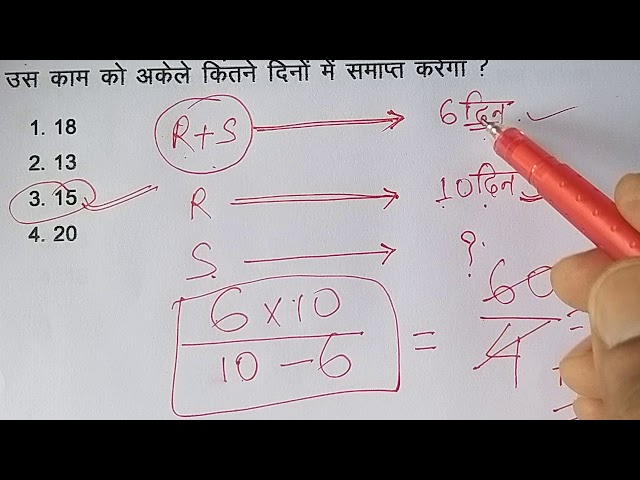 उस काम को अकेले कितने दिनों में समाप्त करेगा ?
1. 18
2. 13
3. 15
4. 20
R+S → 6 दिन
R → 10 दिन
S → ?
6 × 10 / 10 − 6 = 60 / 4 =